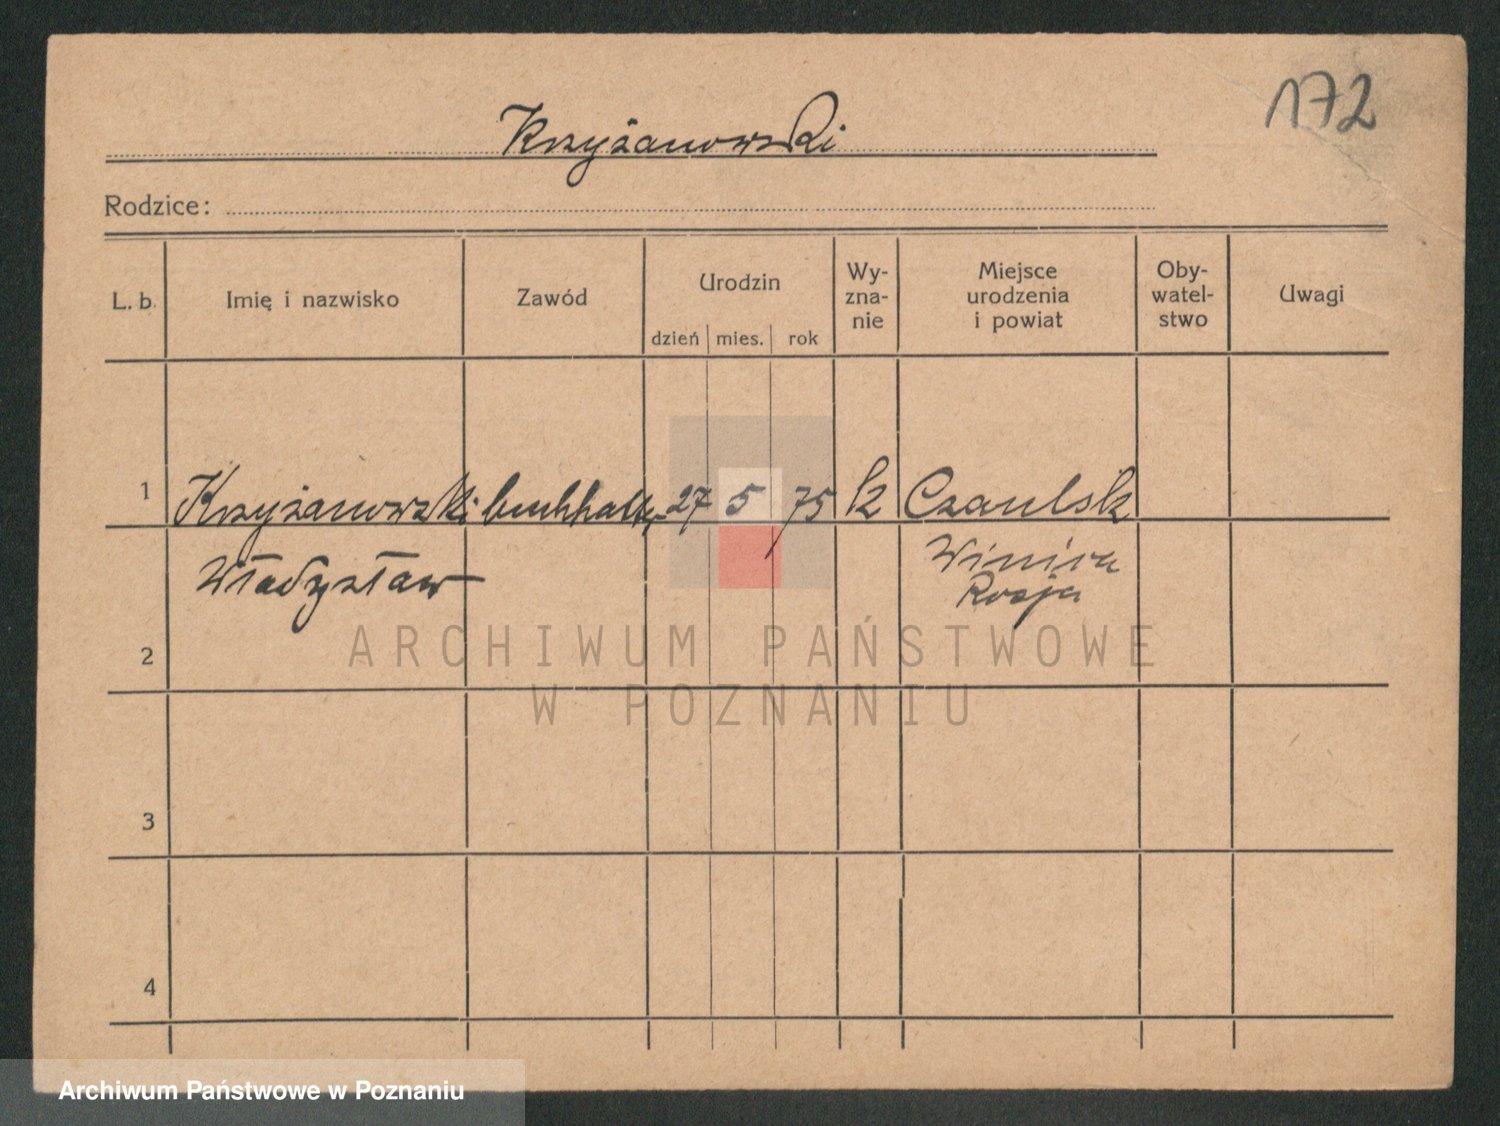 172
Krzyżanowski
Rodzice:
L. b. Imię i nazwisko Zawód Urodzin dzień mies. rok Wy-zna-nie Miejsce urodzenia i powiat Oby-watel-stwo Uwagi
1 Krzyżanowski buchhalter 27 5 75 k Czaulsk
Władysław
Rosja
2
ARCHIWUM PAŃSTWOWE
W POZNANIU
3
4
Archiwum Państwowe w Poznaniu